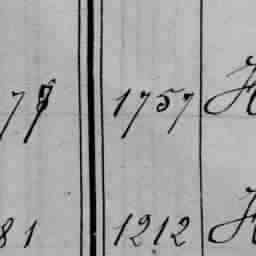 77 1757 H
81 1212 H